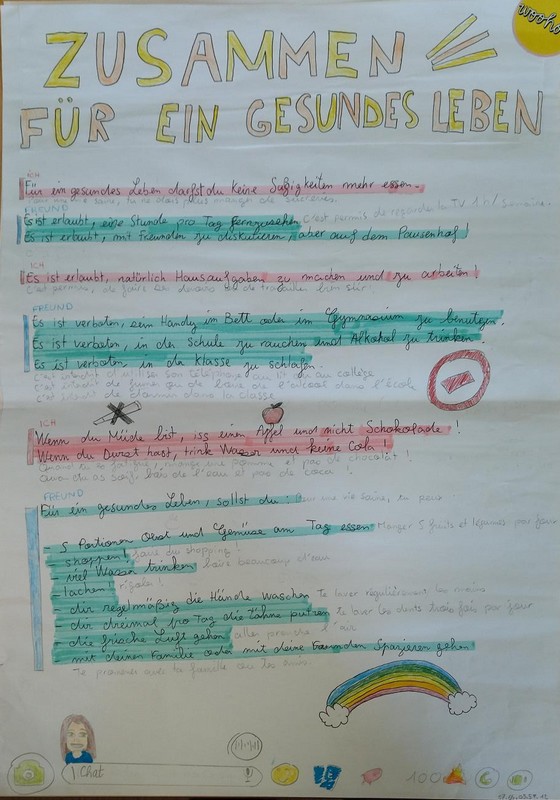 wooho
ZUSAMMEN
FÜR EIN GESUNDES LEBEN
ICH
Für ein gesundes Leben darfst du keine Süßigkeiten mehr essen.
FREUND
Es ist erlaubt, eine Stunde pro Tag fernzusehen c'est permis de regarder la TV 1h/semaine.
Es ist erlaubt, mit Freunden zu diskutieren, aber auf dem Pausenhof!
ICH
Es ist erlaubt, natürlich Hausaufgaben zu machen und zu arbeiten!
C'est permis, de faire les devoirs et de travailler bien sûr!
FREUND
Es ist verboten, sein Handy im Bett oder im Gymnasium zu benutzen.
Es ist verboten, in der Schule zu rauchen und Alkohol zu trinken
Es ist verboten, in der Klasse zu schlafen.
c'est interdit d'utiliser son téléphone au lit ou au collège
c'est interdit de fumer ou de boire de l'alcool dans l'école
c'est interdit de dormir dans la classe
ICH
Wenn du Müde bist, iss einen Apfel und nicht Schokolade!
Wenn du Durst hast, trink Wasser und keine Cola!
mange une pomme et pas de chocolat!
Quand tu as soif, bois de l'eau et pas de coca!
FREUND
Für ein gesundes Leben, sollst du: Pour une vie saine, tu peux:
- 5 Portionen Obst und Gemüse am Tag essen Manger 5 fruits et légumes par jour
- shoppen! faire du shopping!
- viel Wasser trinken boire beaucoup d'eau
lachen! rigoler!
- dir regelmäßig die Hände waschen Te laver régulièrement les mains
- dir dreimal pro Tag die Zähne putzen te laver les dents trois fois par jour
- die frische Luft gehen aller prendre l'air
mit deinen Familie oder mit deine Freunden Spazieren gehen!
Te promener avec ta famille ou tes amis.
Chat
100